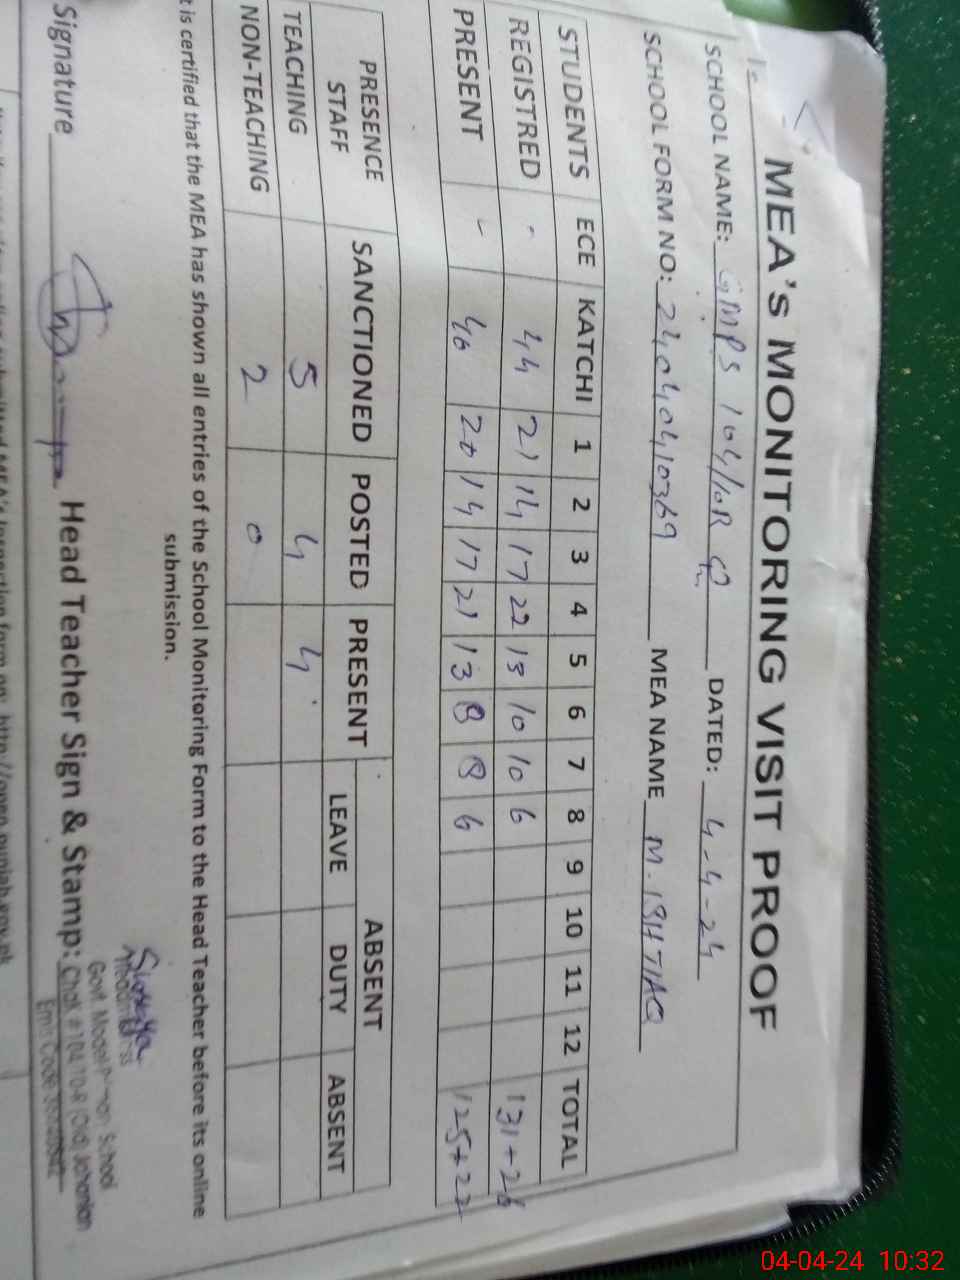 MEA's MONITORING VISIT PROOF
SCHOOL NAME: GMPS 104/10R DATED: 4-4-24
SCHOOL FORM NO: 24040410369 MEA NAME M. ISHTIAQ
STUDENTS ECE KATCHI 1 2 3 4 5 6 7 8 9 10 11 12 TOTAL
REGISTRED - 44 21 14 17 22 13 10 10 6 131+26
PRESENT - 40 20 14 17 21 13 8 8 6 125+22
PRESENCE STAFF SANCTIONED POSTED PRESENT ABSENT
LEAVE DUTY ABSENT
TEACHING 5 4 4
NON-TEACHING 2 0
t is certified that the MEA has shown all entries of the School Monitoring Form to the Head Teacher before its online
submission.
Signature Head Teacher Sign & Stamp:
Govt. Model School
Chak # 104/10-R (Old) Jahanian
04-04-24 10:32